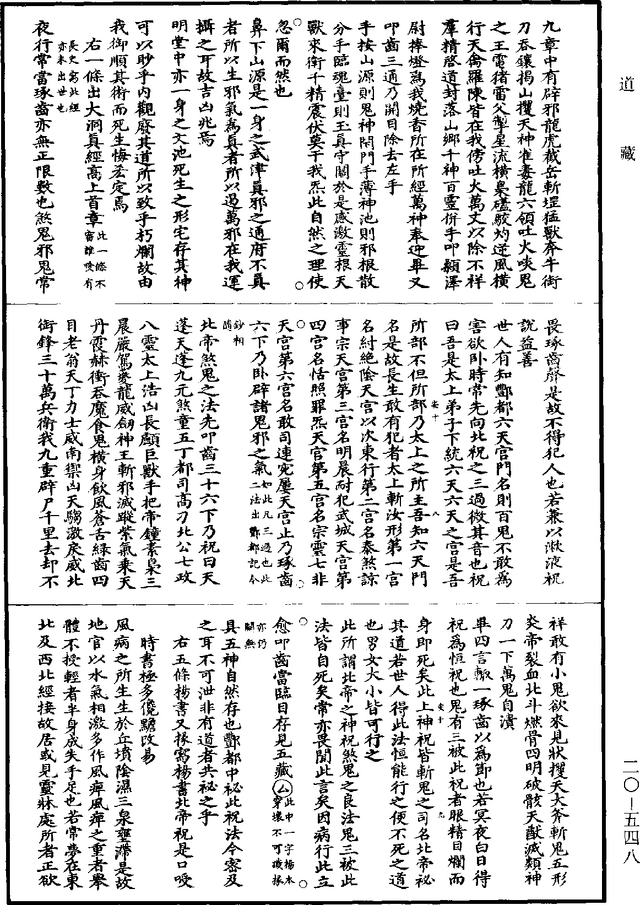 道藏
九章中有辟邪龍虎截岳斬罡猛獸奔牛銜
刀吞鑊揭山攫天神雀毒龍六領吐火啖鬼
之王電猪雷父掣星流橫梟磕駮灼逆風橫
行天禽羅陳皆在我傍吐火萬丈以除不祥
羣精啓道封落山鄉千神百靈併手叩額澤
尉捧燈為我燒香所在所經萬神奉迎畢又
叩齒三通乃開目除去左手
手按山源則鬼神閉門手薄神池則邪根散
分手臨魂臺則玉真守關於是感激靈根天
獸來衛千精震伏莫干我炁此自然之理使
忽爾而然也
鼻下山源是一身之武津真邪之通府不真
者所以生邪氣為真者所以遏萬邪在我運
攝之耳故吉凶兆焉
明堂中亦一身之文池死生之形宅存其神
可以眇乎內觀廢其道所以致乎朽爛故由
我御順其術而死生悔吝定焉
右一條出大洞真經高上首章此一條不審誰受有
長史寫此經亦未出世也
夜行常當琢齒亦無正限數也煞鬼邪鬼常
畏琢齒聲是故不得犯人也若兼以漱液祝
說益善
世人有知酆都六天宮門名則百鬼不敢為
害欲臥時常先向北祝之三過微其音也祝
曰吾是太上弟子下統六天六天之宮是吾
所部不但所部乃太上之所主吾知六天門
名是故長生敢有犯者太上斬汝形第一宮
名紂絕陰天宮以次東行第二宮名泰煞諒
事宗天宮第三宮名明晨耐犯武城天宮第
四宮名恬照罪炁天宮第五宮名宗靈七非
天宮第六宮名敢司連宛屢天宮止乃琢齒
六下乃臥辟諸鬼邪之氣如此凡三過也此二法出酆都記今鈔相隨
北帝煞鬼之法先叩齒三十六下乃祝曰天
蓬天蓬九元煞童五丁都司高刁北公七政
八靈太上浩凶長顱巨獸手把帝鐘素梟三
晨嚴駕夔龍威劍神王斬邪滅蹤紫氣乘天
丹霞赫衝吞魔食鬼橫身飲風蒼舌綠齒四
目老翁天丁力士威南禦凶天騶激戾威北
銜鋒三十萬兵衛我九重辟尸千里去却不
祥敢有小鬼欲來見狀攫天大斧斬鬼五形
炎帝裂血北斗燃骨四明破骸天猷滅類神
刀一下萬鬼自潰
畢四言輒一琢齒以為節也若冥夜白日得
祝為恒祝也鬼有三被此祝者眼精目爛而
身即死矣此上神祝皆斬鬼之司名北帝祕
其道若世人得此法恒能行之便不死之道
也男女大小皆可行之
此所謂北帝之神祝煞鬼之良法鬼三被此
法皆自死矣常亦畏聞此言矣因病行此立
愈叩齒當臨目存見五藏厶此中一字楊本穿壞不可識據亦仍闕無
具五神自然存也酆都中秘此祝法今密及
之耳不可泄非有道者共祕之乎
右五條楊書又掾寫楊書北帝祝是口受
時書極多儳黵改易
風病之所生生於丘墳陰濕三泉壅滯是故
地官以水氣相激多作風痺風痺之重者舉
體不授輕者半身成失手足也若常夢在東
北及西北經接故居或見靈牀處所者正欲
二〇－五四八